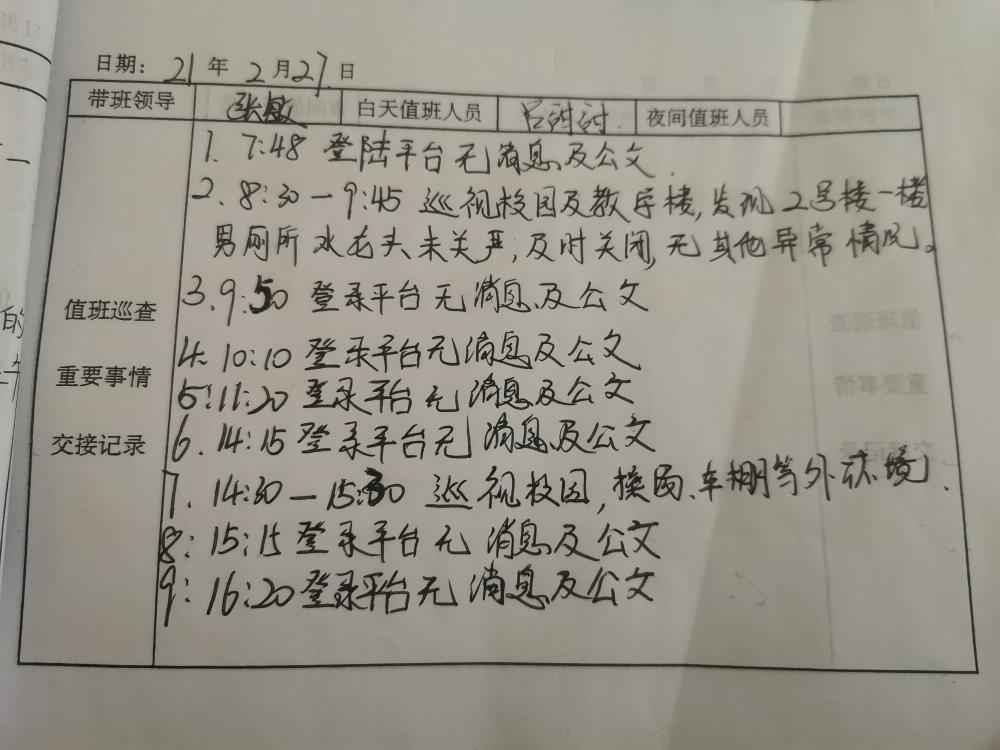 日期: 21 年 2 月 27 日
带班领导 张敏 白天值班人员 吕甜甜 夜间值班人员
1. 7:48 登陆平台无消息及公文
2. 8:30—9:45 巡视校园及教学楼,发现2号楼一楼
男厕所水龙头未关严,及时关闭,无其他异常情况。
3. 9:50 登录平台无消息及公文
值班巡查
4. 10:10 登录平台无消息及公文
重要事情
5: 11:20 登录平台无消息及公文
交接记录
6. 14:15 登录平台无消息及公文
7. 14:30—15:30 巡视校园,操场、车棚等外环境.
8: 15:15 登录平台无消息及公文
9: 16:20 登录平台无消息及公文